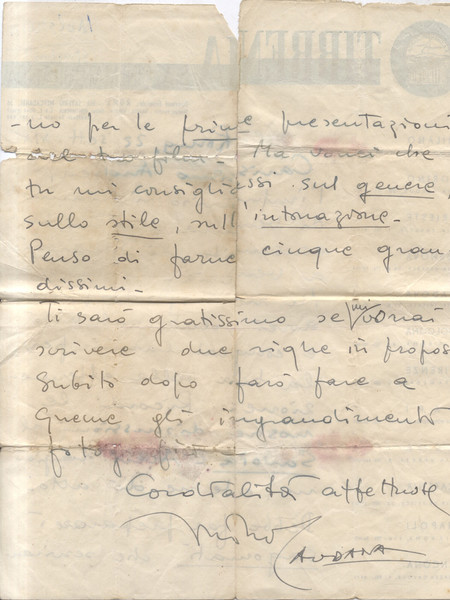 -no per le prime presentazioni
del tuo film. Ma vorrei che
tu mi consigliassi sul genere,
sullo stile, sull'intonazione-
Penso di farne cinque gran
dissimi-
Ti sarò gratissimo se mi vorrai
scrivere due righe in propos
Subito dopo farò fare a
gli ingrandimenti
fotografici
Cordialità affettuose
Mino CAUDANA